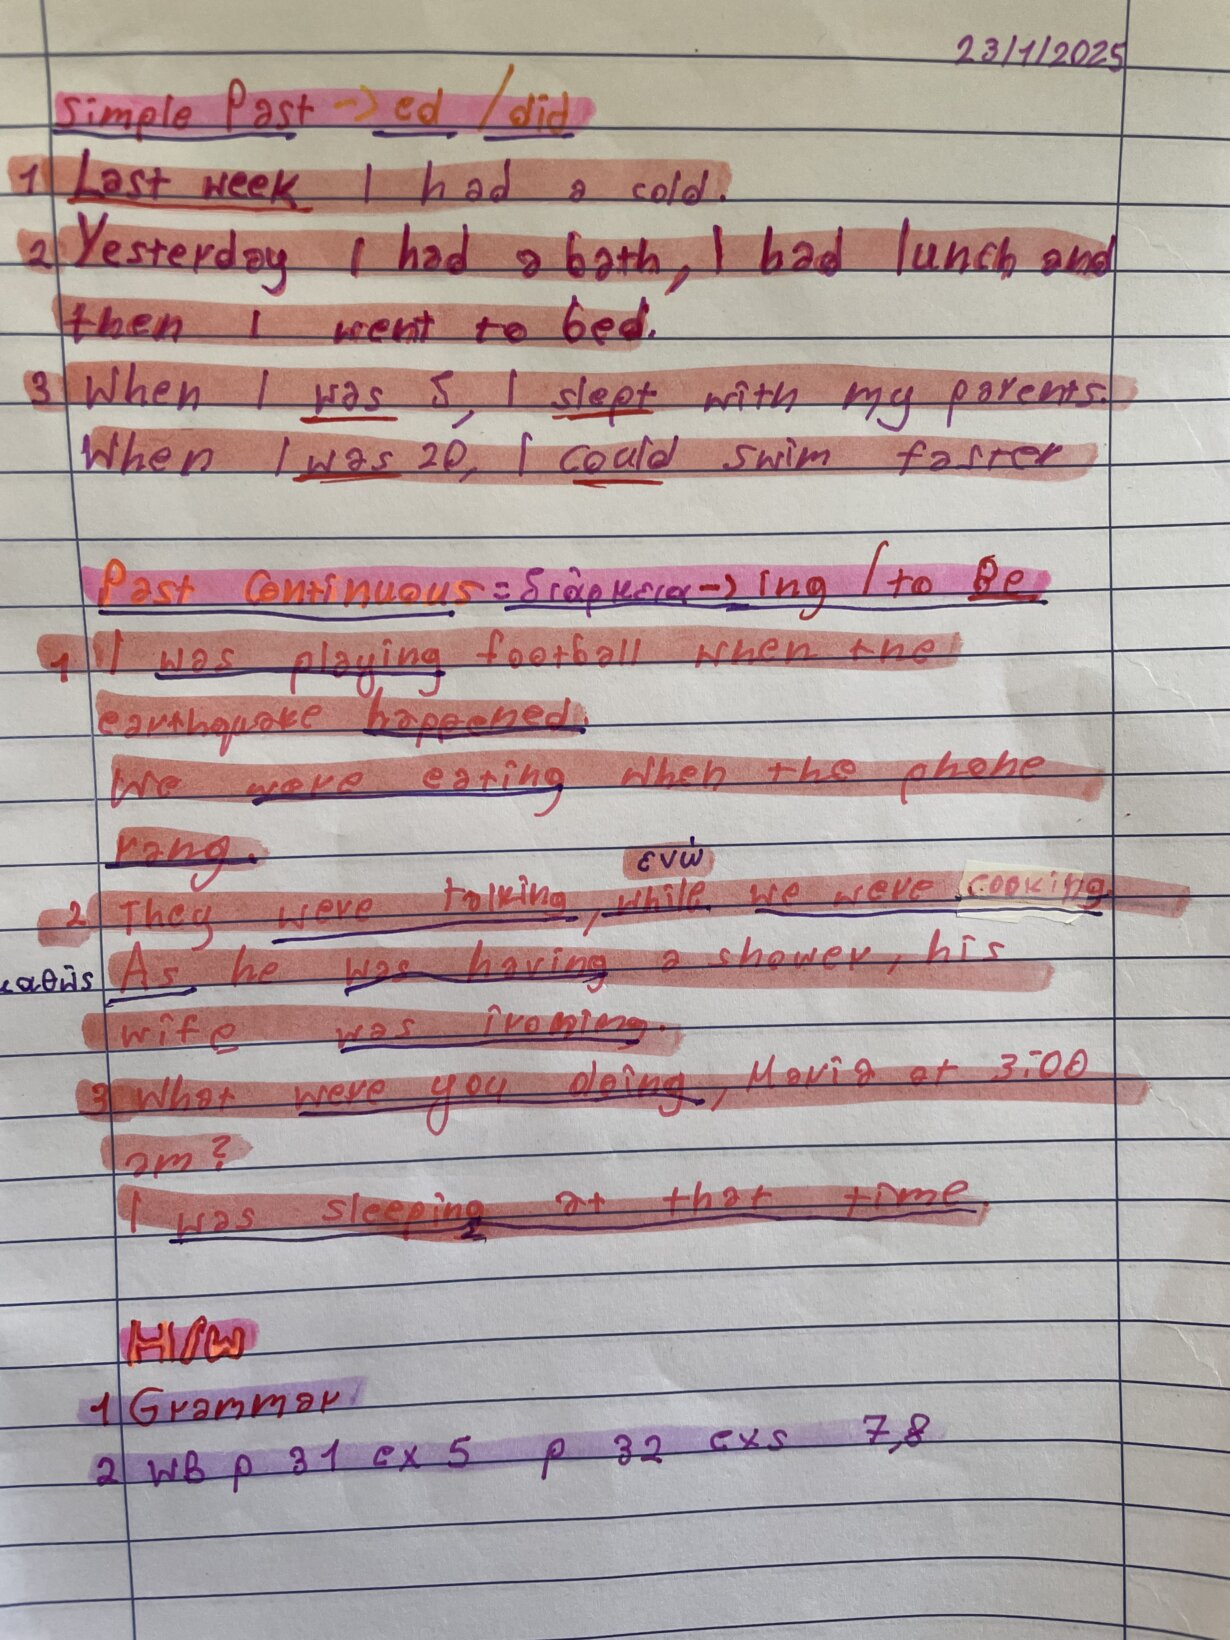 23/1/2025
Simple Past -> ed / did
1 Last week I had a cold.
2 Yesterday I had a bath, I had lunch and
then I went to bed.
3 When I was 5, I slept with my parents.
When I was 20, I could swim faster
Past Continuous = διάρκεια -> ing / to Be
1 I was playing football when the
earthquake happened.
We were eating when the phone
rang.
ενώ
2 They were talking, while we were cooking.
καθώς As he was having a shower, his
wife was ironing.
3 What were you doing, Maria at 3:00
am?
I was sleeping at that time.
H/W
1 Grammar
2 WB p 31 ex 5 p 32 exs 7,8